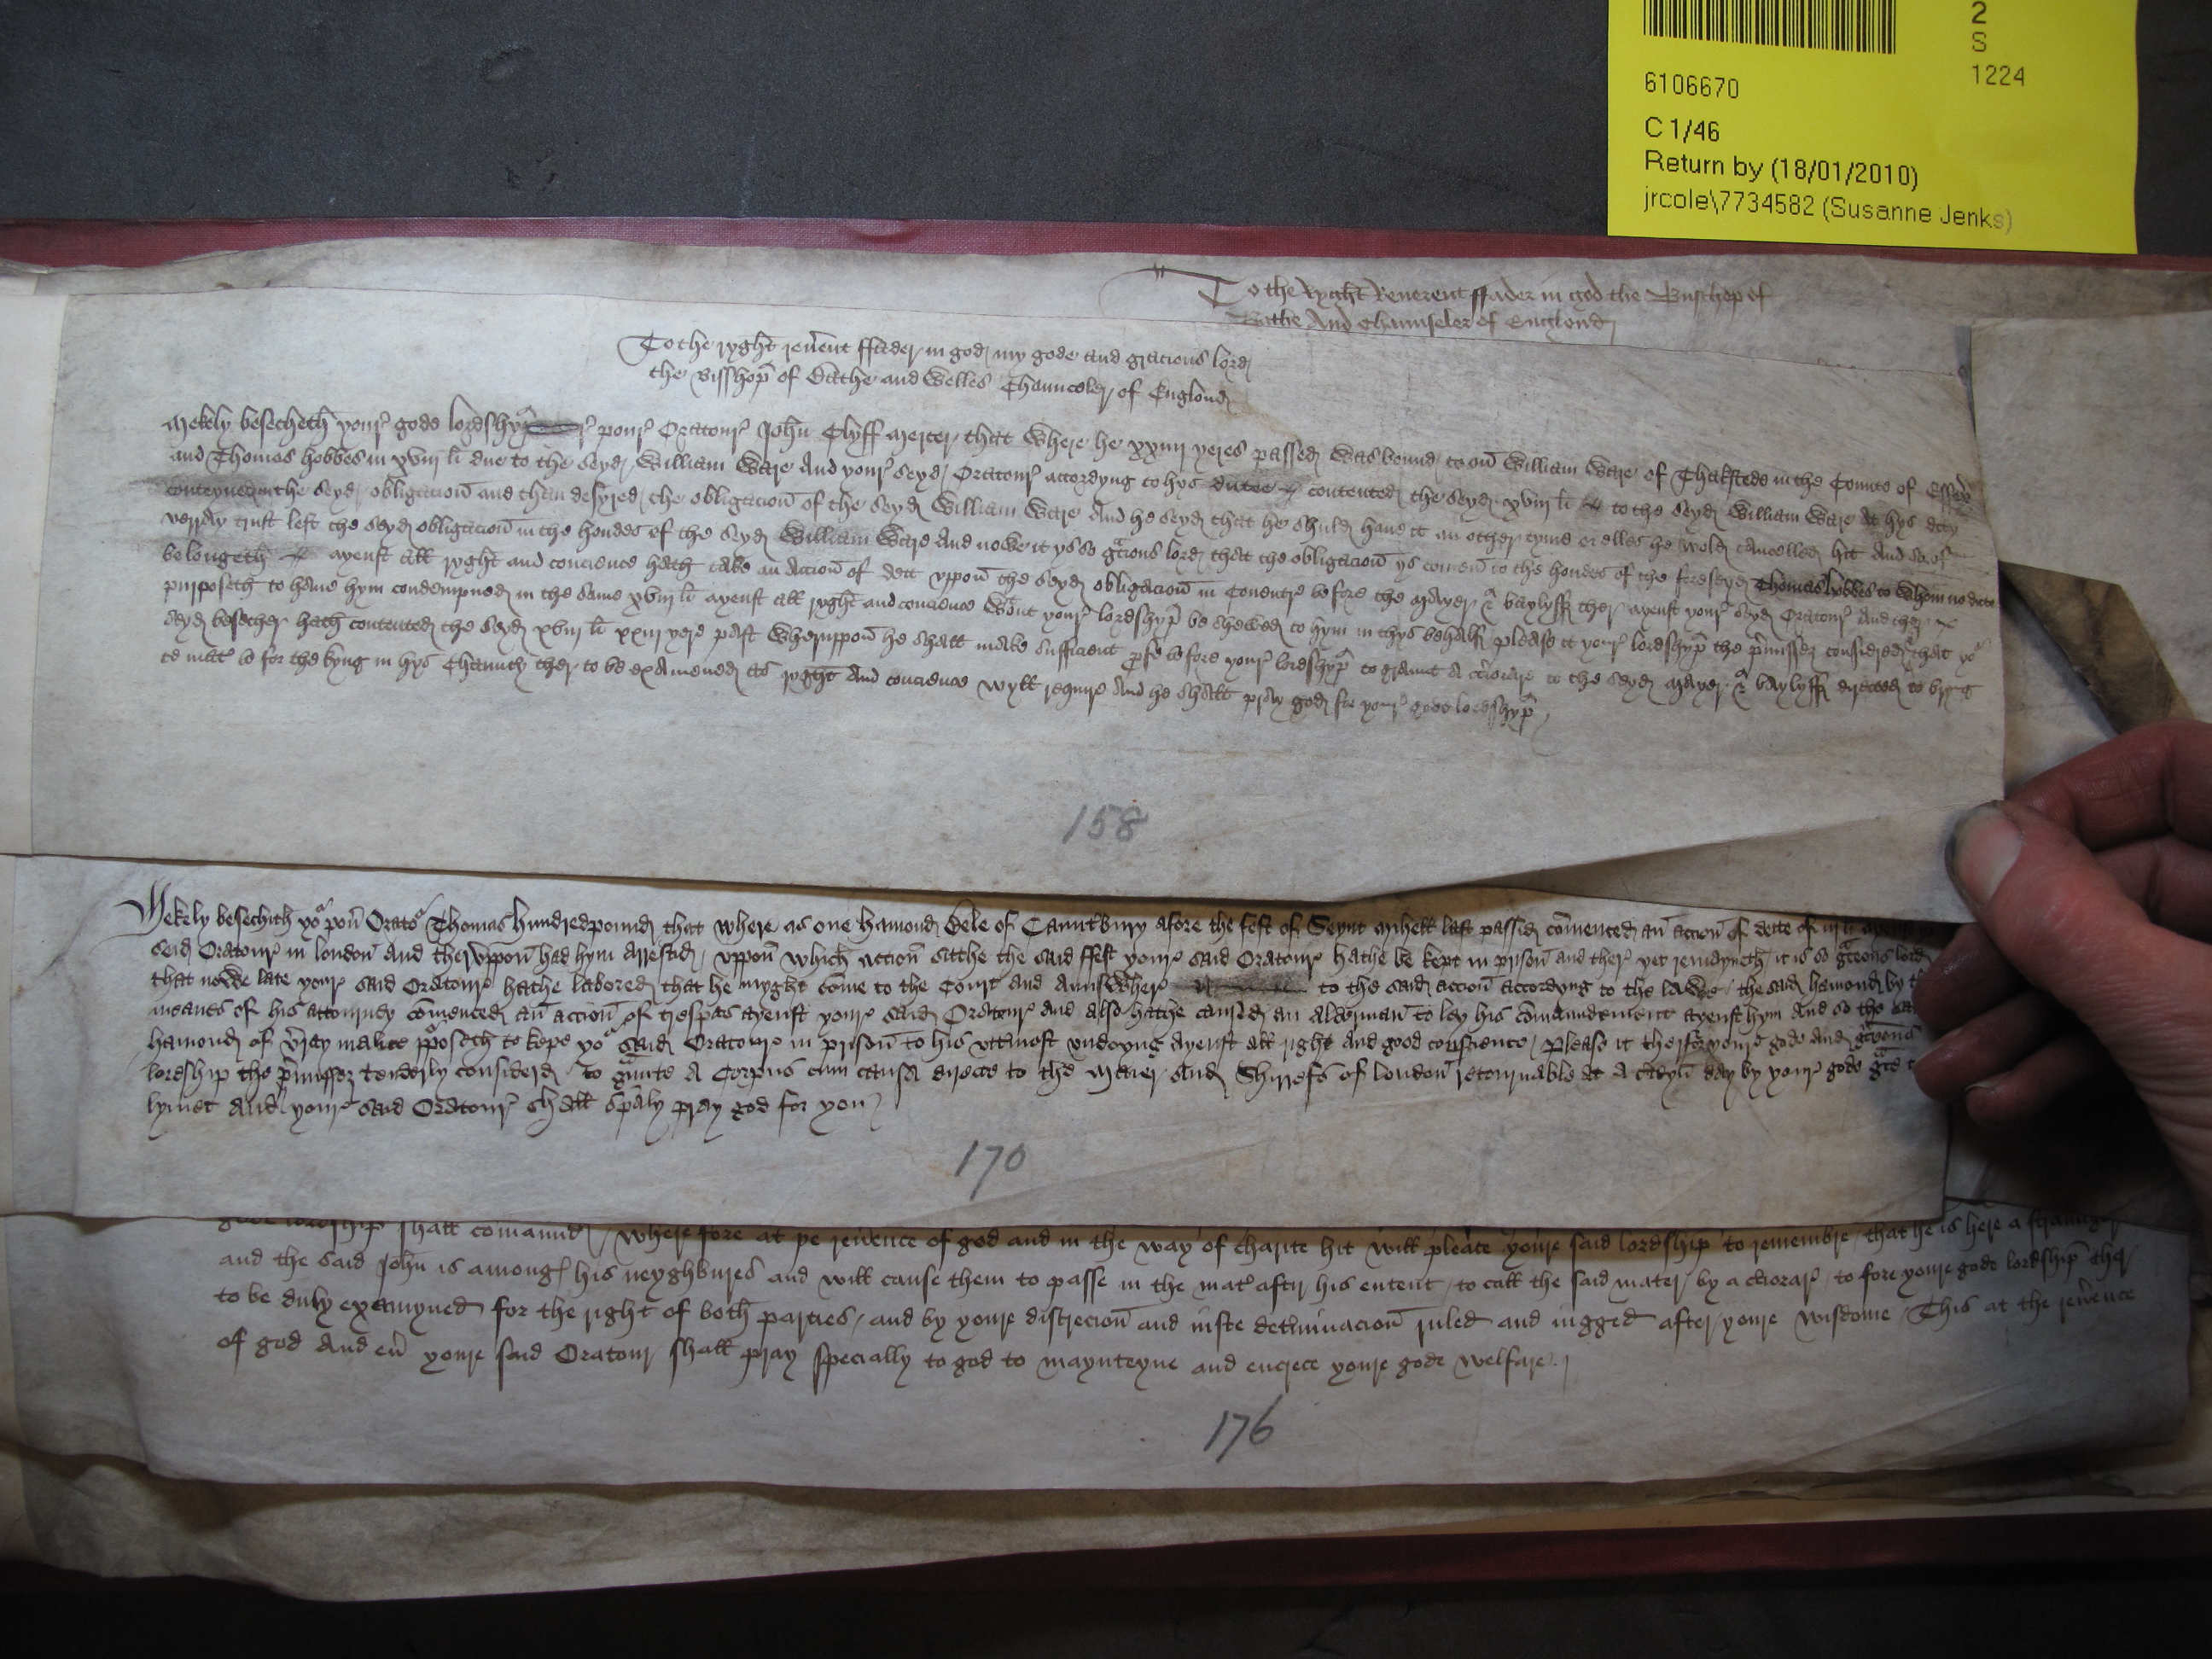 2
S
1224
6106670
C 1/46
Return by (18/01/2010)
jrcole\7734582 (Susanne Jenks)
To the Ryght Reuerent ffader in god the Busshop of
Bathe And Chaunseler of Englond
To the ryght reuent ffader in god my gode and gracious lord
the Bisshop of Bathe and Welles Chaunceler of Englond
Mekely besecheth your gode lordshyp pour Oratour John Clyff mercer that where he xxiiii yeres passed was bound to on William Ware of Thakstede in the Counte of Essex
and Thomas hobbes in xviii li due to the seyd William Ware And your seyd Oratour accordyng to hys dutee contented the seyd xviii li to the seyd William Ware At hys day
conteyned in the seyd obligacion and than desyred the obligacion of the seyd William Ware And he seyd that he shuld haue it an other tyme or elles he wold cancelled hit And so of
verray trust left the seyd obligacion in the hondes of the seyd William Ware And nowe it ys so gracious lord that the obligacion ys comen to the hondes of the forseyd Thomas hobbes to whom no dute
belongeth ayenst all ryght and concience hath take an Accion of dett vppon the seyd obligacion in Couentre before the Mayer & baylyff ther ayenst your seyd Oratour And ther
purposeth to haue hym condempned in the same xviii li ayenst all ryght and concience Wout your lordshyp be shewed to hym in thys behalf please it your lordshyp the pmisses considered that yor
seyd besecher hath contented the seyd xviii li xxiii yere past Wheruppon he shall make sufficient profe before your lordshyp to graunt A ciorare to the seyd Mayer & baylyff directed to bryng
te mat be for the kyng in hys Chauncy ther to be examened As ryght And concience wyll require And he shall pray god for your gode lordshyp
158
Mekely besechith yor pou Orator Thomas hundredpound that where as one hamond Bele of Cauntbury afore the fest of Seynt Mihell last passid comenced an accion of dette of iii li ayenst
seid Oratour in london And thervppon had hym Arrestid vppon which accion sithe the said ffest youre said Oratoure hathe be kept in prison and there yet remayneth it is so gracous lord
that nowe late youre said Oratoure hathe labored that he myght come to the Court and Aunswhere to the said accion accordyng to the lawe the said hamond by
meanes of his attourney comenced an accion of trespas ayenst youre said Oratoure And also hathe caused an Alderman to ley his comaundement ayenst hym And so the
hamond of vray malice pposeth to kepe yor said Oratoure in prison to his vttmost vndoyng Ayenst all right And good conscience Please it therfor youre gode and gracous
lordship the pmisses tenderly considerd to graunte A Corpus cum causa directe to the Maier And Shirrefs of london retournable At A cteyn day by youre gode
lymet And youre said Oratoure shall spaly pray god for you
170
gode lordship shall comaund where fore at pe reuence of god and in the way of charite hit will please youre said lordship to remembre that he is here a straunger
and the said John is among his neyghbures and will cause them to passe in the mat aftir his entent to call the said mater by a ciorare to fore youre gode lordship ther
to be duly examyned for the right of both parties and by youre discrecion and iuste detminacion ruled and iugged after youre wisdome This at the reuence
of god And eu youre said Oratour shall pray specially to god to maynteyne and encrece youre gode welfare
176